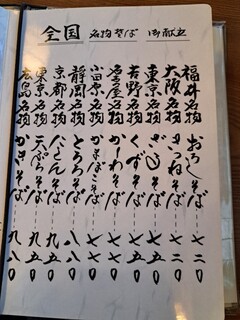 全国 名物そば 御献立
福井名物 おろしそば 七二〇
大阪名物 きつねそば 七二〇
東京名物 ざるそば 七五〇
吉野名物 くずそば 七五〇
名古屋名物 かしわそば 七七〇
小田原名物 かまぼこそば 七七〇
静岡名物 とろろそば 八八〇
京都名物 にしんそば 九五〇
東京名物 天ぷらそば 九五〇
広島名物 かきそば 九八〇